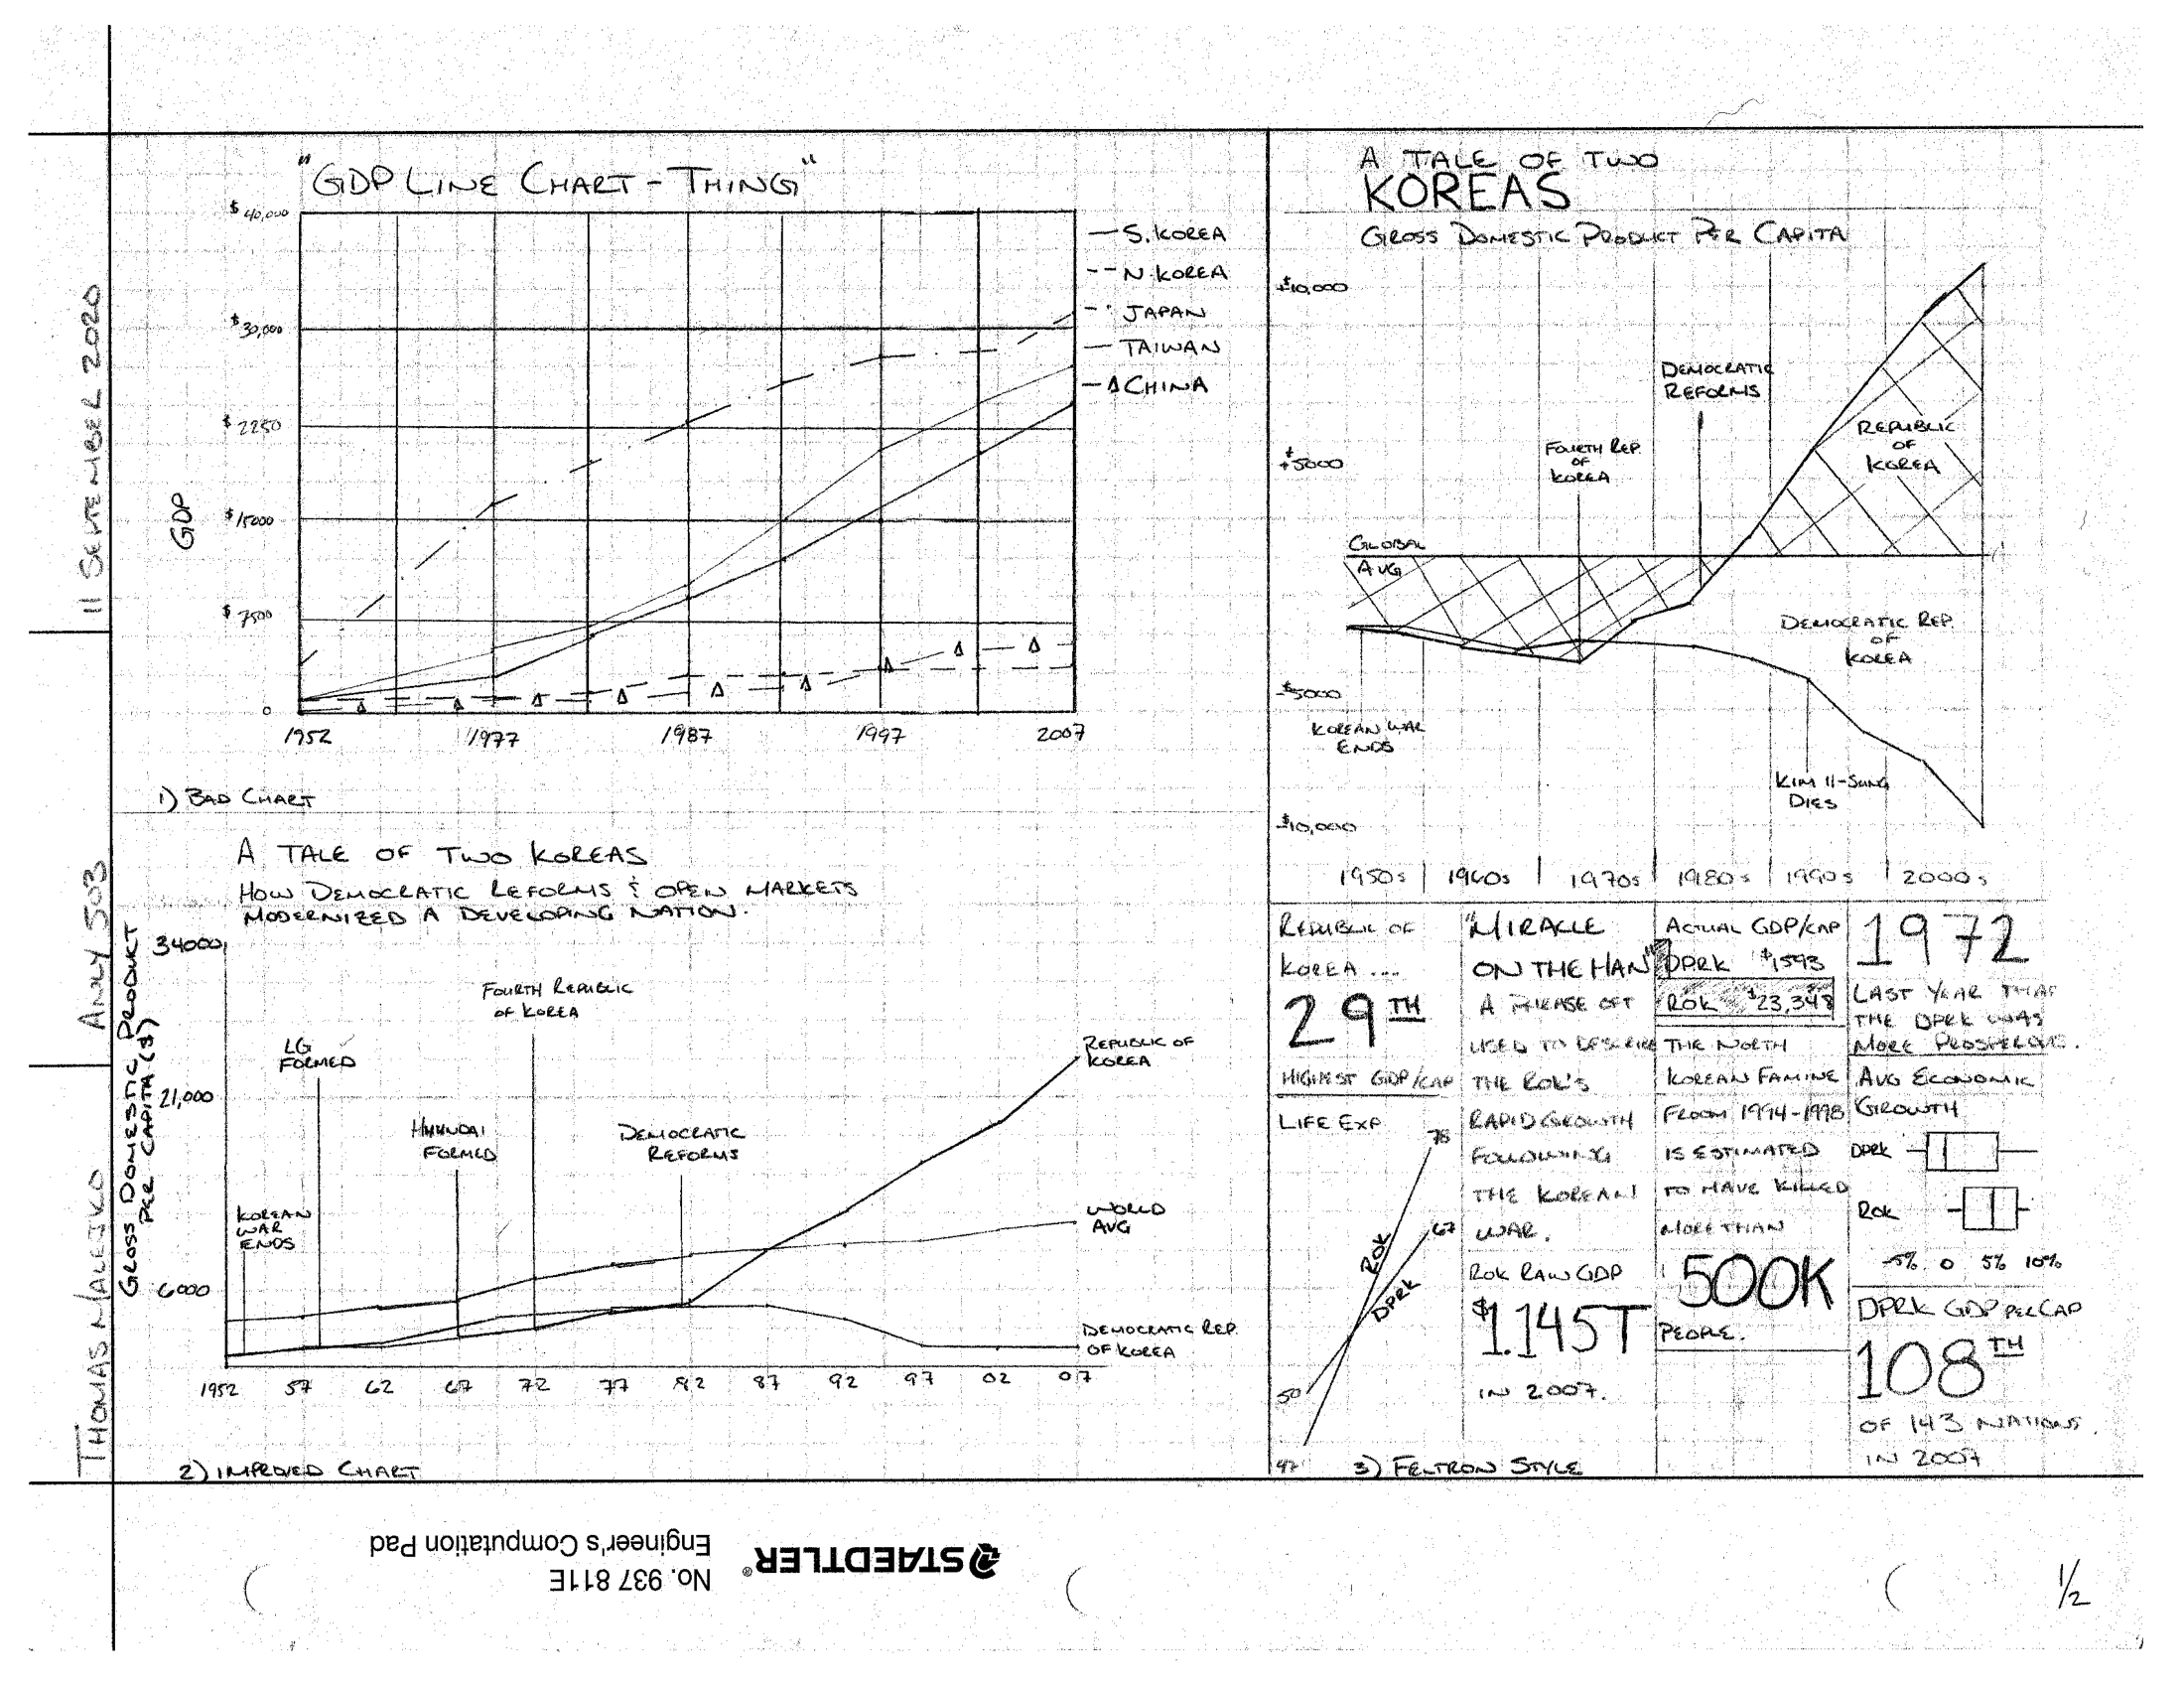 11 SEPTEMBER 2020
ANLY 503
THOMAS MALEJKO
"GDP LINE CHART - THING"
$ 40,000
$ 30,000
$ 2250
$ 15000
$ 7500
0
GDP
1952 1977 1987 1997 2007
S. KOREA
N. KOREA
JAPAN
TAIWAN
CHINA
1) BAD CHART
A TALE OF TWO KOREAS
HOW DEMOCRATIC REFORMS & OPEN MARKETS
MODERNIZED A DEVELOPING NATION.
GROSS DOMESTIC PRODUCT
PER CAPITA ($)
34000
21,000
6000
KOREAN
WAR
ENDS
LG
FORMED
HYUNDAI
FORMED
FOURTH REPUBLIC
OF KOREA
DEMOCRATIC
REFORMS
REPUBLIC OF
KOREA
WORLD
AVG
DEMOCRATIC REP.
OF KOREA
1952 57 62 67 72 77 82 87 92 97 02 07
2) IMPROVED CHART
A TALE OF TWO
KOREAS
GROSS DOMESTIC PRODUCT PER CAPITA
+$10,000
+$5000
-$5000
-$10,000
GLOBAL
AVG
KOREAN WAR
ENDS
FOURTH REP.
OF
KOREA
DEMOCRATIC
REFORMS
REPUBLIC
OF
KOREA
DEMOCRATIC REP.
OF
KOREA
KIM Il-SUNG
DIES
1950s 1960s 1970s 1980s 1990s 2000s
REPUBLIC OF
KOREA ...
29TH
HIGHEST GDP/CAP
LIFE EXP.
78
67
ROK
DPRK
50
47
"MIRACLE
ON THE HAN"
A PHRASE OFT
USED TO DESCRIBE
THE ROK'S
RAPID GROWTH
FOLLOWING
THE KOREAN
WAR.
ROK RAW GDP
$1.145T
IN 2007.
ACTUAL GDP/CAP
DPRK $1,593
ROK $23,348
THE NORTH
KOREAN FAMINE
FROM 1994-1998
IS ESTIMATED
TO HAVE KILLED
MORE THAN
500K
PEOPLE.
1972
LAST YEAR THAT
THE DPRK WAS
MORE PROSPEROUS.
AVG ECONOMIC
GROWTH
DPRK
ROK
-5% 0 5% 10%
DPRK GDP PER CAP
108TH
OF 143 NATIONS.
IN 2007
3) FELTRON STYLE
STAEDTLER®
No. 937 811E
Engineer's Computation Pad
1/2